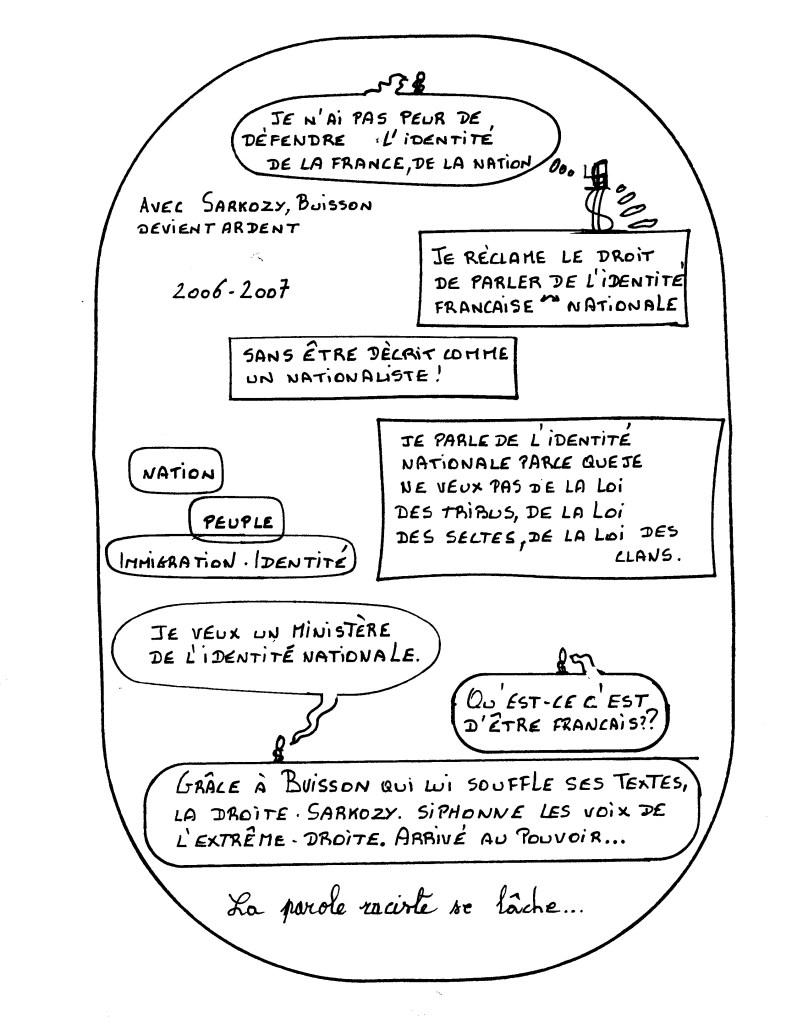 JE N'AI PAS PEUR DE
DÉFENDRE L'IDENTITÉ
DE LA FRANCE, DE LA NATION
AVEC SARKOZY, BUISSON
DEVIENT ARDENT
JE RÉCLAME LE DROIT
DE PARLER DE L'IDENTITÉ
FRANCAISE NATIONALE
2006-2007
SANS ÊTRE DÉCRIT COMME
UN NATIONALISTE !
JE PARLE DE L'IDENTITÉ
NATIONALE PARCE QUE JE
NE VEUX PAS DE LA LOI
DES TRIBUS, DE LA LOI
DES SECTES, DE LA LOI DES
CLANS.
NATION
PEUPLE
IMMIGRATION . IDENTITÉ
JE VEUX UN MINISTÈRE
DE L'IDENTITÉ NATIONALE.
QU'EST-CE C'EST
D'ÊTRE FRANCAIS??
GRÂCE À BUISSON QUI LUI SOUFFLE SES TEXTES,
LA DROITE . SARKOZY . SIPHONNE LES VOIX DE
L'EXTRÊME - DROITE. ARRIVÉ AU POUVOIR...
La parole raciste se lâche...